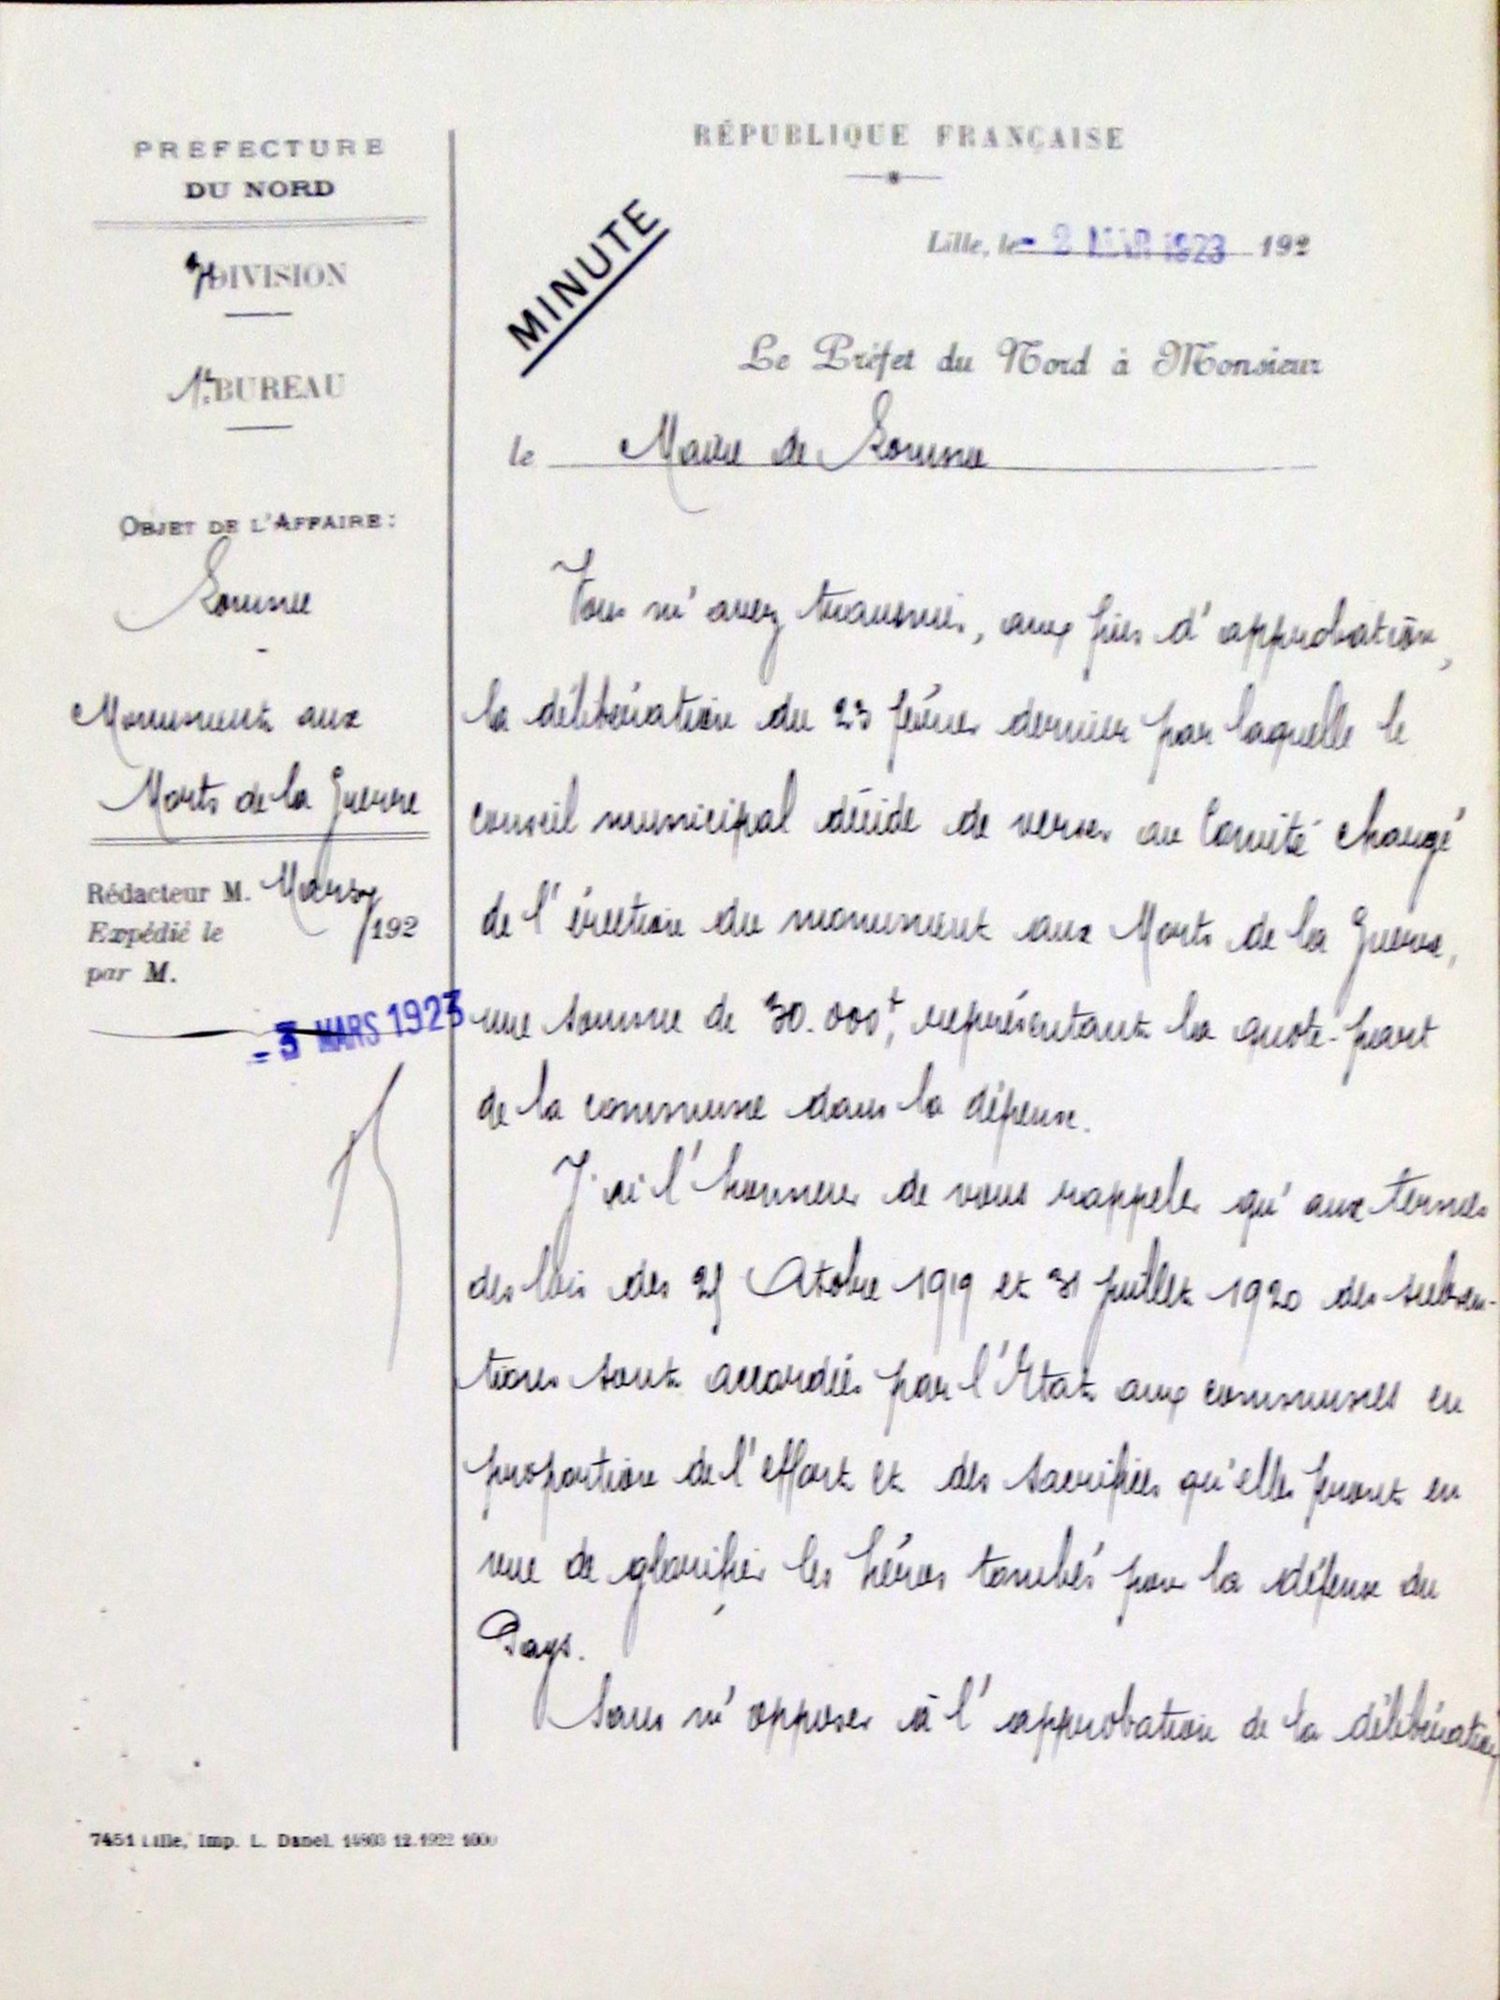 PRÉFECTURE
DU NORD
DIVISION
1er BUREAU
OBJET DE L'AFFAIRE :
Monument aux
Morts de la Guerre
Rédacteur M.
Expédié le 192
par M.
- 3 MARS 1923
RÉPUBLIQUE FRANÇAISE
MINUTE
Lille, le - 2 MAR 1923 192
Le Préfet du Nord à Monsieur
le Maire de
Vous m'avez transmis, aux fins d'approbation,
la délibération du 23 février dernier par laquelle le
conseil municipal décide de verser au Comité chargé
de l'érection du monument aux Morts de la Guerre,
une somme de 30.000f, représentant la quote-part
de la commune dans la dépense.
J'ai l'honneur de vous rappeler qu'aux termes
des lois des 25 Octobre 1919 et 31 juillet 1920 des subven-
tions sont accordées par l'Etat aux communes en
proportion de l'effort et des sacrifices qu'elles feront en
vue de glorifier les héros tombés pour la défense du
Pays.
Sans m'opposer à l'approbation de la délibération
7451 Lille, Imp. L. Danel. 14803 12.1922 1000